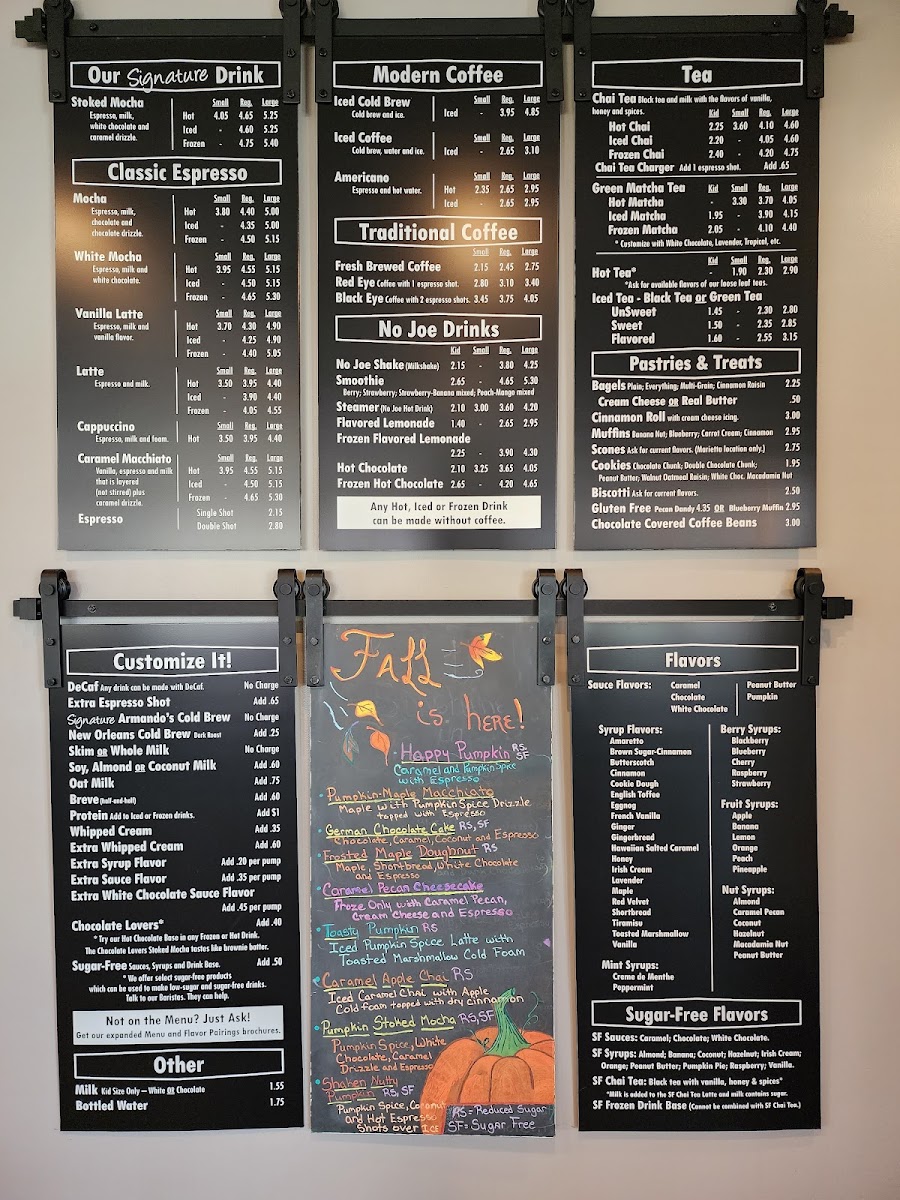 Our Signature Drink
Small Reg. Large
Stoked Mocha
Espresso, milk, Hot 4.05 4.65 5.25
white chocolate and Iced - 4.60 5.25
caramel drizzle. Frozen - 4.75 5.40
Classic Espresso
Mocha Small Reg. Large
Espresso, milk, Hot 3.80 4.40 5.00
chocolate and Iced - 4.35 5.00
chocolate drizzle. Frozen - 4.50 5.15
White Mocha Small Reg. Large
Espresso, milk and Hot 3.95 4.55 5.15
white chocolate. Iced - 4.50 5.15
Frozen - 4.65 5.30
Vanilla Latte Small Reg. Large
Espresso, milk and Hot 3.70 4.30 4.90
vanilla flavor. Iced - 4.25 4.90
Frozen - 4.40 5.05
Latte Small Reg. Large
Espresso and milk. Hot 3.50 3.95 4.40
Iced - 3.90 4.40
Frozen - 4.05 4.55
Cappuccino Small Reg. Large
Espresso, milk and foam. Hot 3.50 3.95 4.40
Caramel Macchiato Small Reg. Large
Vanilla, espresso and milk Hot 3.95 4.55 5.15
that is layered Iced - 4.50 5.15
(not stirred) plus Frozen - 4.65 5.30
caramel drizzle.
Espresso Single Shot 2.15
Double Shot 2.80
Modern Coffee
Iced Cold Brew Small Reg. Large
Cold brew and ice. Iced - 3.95 4.85
Iced Coffee Small Reg. Large
Cold brew, water and ice. Iced - 2.65 3.10
Americano Small Reg. Large
Espresso and hot water. Hot 2.35 2.65 2.95
Iced - 2.65 2.95
Traditional Coffee
Small Reg. Large
Fresh Brewed Coffee 2.15 2.45 2.75
Red Eye Coffee with 1 espresso shot. 2.80 3.10 3.40
Black Eye Coffee with 2 espresso shots. 3.45 3.75 4.05
No Joe Drinks
Kid Small Reg. Large
No Joe Shake (Milkshake) 2.15 - 3.80 4.25
Smoothie 2.65 - 4.65 5.30
Berry; Strawberry; Strawberry-Banana mixed; Peach-Mango mixed
Steamer (No Joe Hot Drink) 2.10 3.00 3.60 4.20
Flavored Lemonade 1.40 - 2.65 2.95
Frozen Flavored Lemonade
2.25 - 3.90 4.30
Hot Chocolate 2.10 3.25 3.65 4.05
Frozen Hot Chocolate 2.65 - 4.20 4.65
Any Hot, Iced or Frozen Drink
can be made without coffee.
Tea
Chai Tea Black tea and milk with the flavors of vanilla,
honey and spices. Kid Small Reg. Large
Hot Chai 2.25 3.60 4.10 4.60
Iced Chai 2.20 - 4.05 4.60
Frozen Chai 2.40 - 4.20 4.75
Chai Tea Charger Add 1 espresso shot. Add .65
Green Matcha Tea Kid Small Reg. Large
Hot Matcha - 3.30 3.70 4.05
Iced Matcha 1.95 - 3.90 4.15
Frozen Matcha 2.05 - 4.10 4.40
* Customize with White Chocolate, Lavender, Tropical, etc.
Kid Small Reg. Large
Hot Tea* - 1.90 2.30 2.90
*Ask for available flavors of our loose leaf teas.
Iced Tea - Black Tea or Green Tea
UnSweet 1.45 - 2.30 2.80
Sweet 1.50 - 2.35 2.85
Flavored 1.60 - 2.55 3.15
Pastries & Treats
Bagels Plain; Everything; Multi-Grain; Cinnamon Raisin 2.25
Cream Cheese or Real Butter .50
Cinnamon Roll with cream cheese icing. 3.00
Muffins Banana Nut; Blueberry; Carrot Cream; Cinnamon 2.95
Scones Ask for current flavors. (Marietta location only.) 2.75
Cookies Chocolate Chunk; Double Chocolate Chunk; 1.95
Peanut Butter; Walnut Oatmeal Raisin; White Choc. Macadamia Nut
Biscotti Ask for current flavors. 2.50
Gluten Free Pecan Dandy 4.35 OR Blueberry Muffin 2.95
Chocolate Covered Coffee Beans 3.00
Customize It!
DeCaf Any drink can be made with DeCaf. No Charge
Extra Espresso Shot Add .65
Signature Armando's Cold Brew No Charge
New Orleans Cold Brew Dark Roast Add .25
Skim OR Whole Milk No Charge
Soy, Almond OR Coconut Milk Add .60
Oat Milk Add .75
Breve (half-and-half) Add .60
Protein Add to Iced or Frozen drinks. Add $1
Whipped Cream Add .35
Extra Whipped Cream Add .60
Extra Syrup Flavor Add .20 per pump
Extra Sauce Flavor Add .35 per pump
Extra White Chocolate Sauce Flavor
Add .45 per pump
Chocolate Lovers* Add .40
* Try our Hot Chocolate Base in any Frozen or Hot Drink.
The Chocolate Lovers Stoked Mocha tastes like brownie batter.
Sugar-Free Sauces, Syrups and Drink Base. Add .50
* We offer select sugar-free products
which can be used to make low-sugar and sugar-free drinks.
Talk to our Baristas. They can help.
Not on the Menu? Just Ask!
Get our expanded Menu and Flavor Pairings brochures.
Other
Milk Kid Size Only — White OR Chocolate 1.55
Bottled Water 1.75
Fall
is here!
Happy Pumpkin RS SF
Caramel and Pumpkin Spice
with Espresso
Pumpkin-Maple Macchiato
Maple with Pumpkin Spice Drizzle
topped with Espresso
German Chocolate Cake RS, SF
Chocolate, Caramel, Coconut and Espresso
Frosted Maple Doughnut RS
Maple, Shortbread, White Chocolate
and Espresso
Caramel Pecan Cheesecake
Froze Only with Caramel Pecan,
Cream Cheese and Espresso
Toasty Pumpkin RS
Iced Pumpkin Spice Latte with
Toasted Marshmallow Cold Foam
Caramel Apple Chai RS
Iced Caramel Chai with Apple
Cold Foam topped with dry cinnamon
Pumpkin Stoked Mocha RS, SF
Pumpkin Spice, White
Chocolate, Caramel
Drizzle and Espresso
Shaken Nutty
Pumpkin RS, SF
Pumpkin Spice, Coconut
and Hot Espresso
Shots over Ice
RS = Reduced Sugar
SF = Sugar Free
Flavors
Sauce Flavors: Caramel Peanut Butter
Chocolate Pumpkin
White Chocolate
Syrup Flavors:
Amaretto
Brown Sugar-Cinnamon
Butterscotch
Cinnamon
Cookie Dough
English Toffee
Eggnog
French Vanilla
Ginger
Gingerbread
Hawaiian Salted Caramel
Honey
Irish Cream
Lavender
Maple
Red Velvet
Shortbread
Tiramisu
Toasted Marshmallow
Vanilla
Mint Syrups:
Creme de Menthe
Peppermint
Berry Syrups:
Blackberry
Blueberry
Cherry
Raspberry
Strawberry
Fruit Syrups:
Apple
Banana
Lemon
Orange
Peach
Pineapple
Nut Syrups:
Almond
Caramel Pecan
Coconut
Hazelnut
Macadamia Nut
Peanut Butter
Sugar-Free Flavors
SF Sauces: Caramel; Chocolate; White Chocolate.
SF Syrups: Almond; Banana; Coconut; Hazelnut; Irish Cream;
Orange; Peanut Butter; Pumpkin Pie; Raspberry; Vanilla.
SF Chai Tea: Black tea with vanilla, honey & spices*
*Milk is added to the SF Chai Tea Latte and milk contains sugar.
SF Frozen Drink Base (Cannot be combined with SF Chai Tea.)